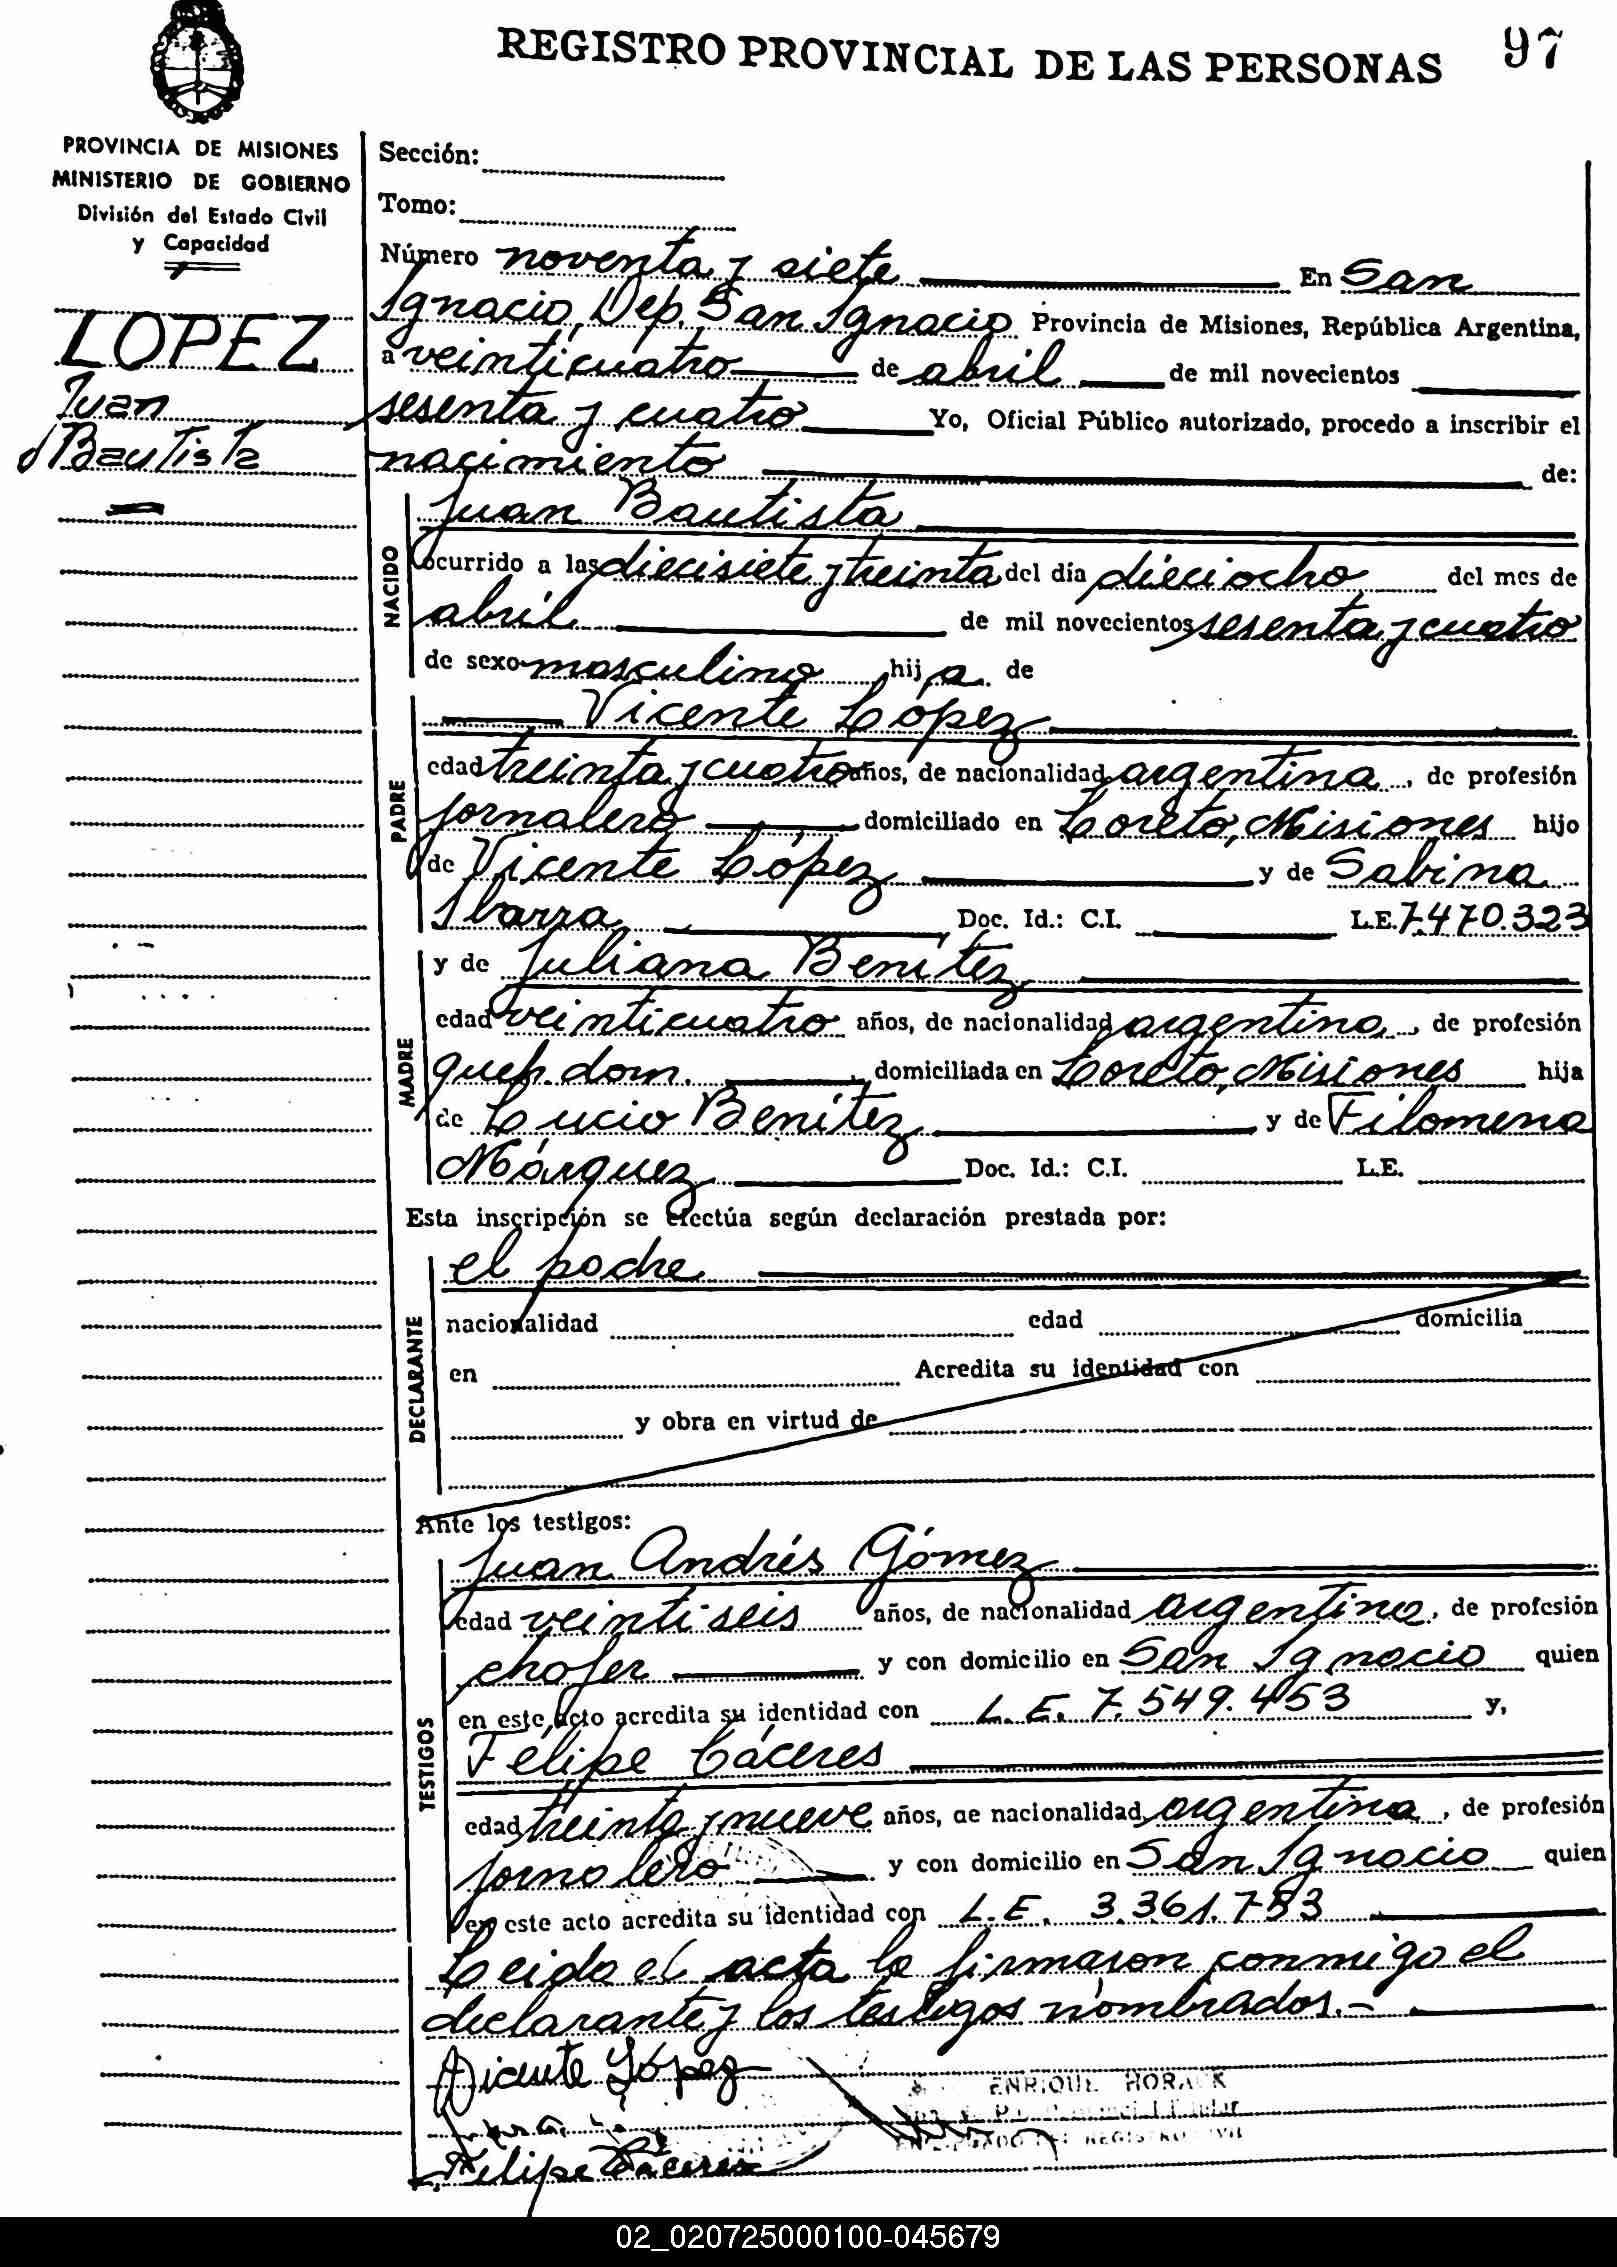 REGISTRO PROVINCIAL DE LAS PERSONAS 97
PROVINCIA DE MISIONES
MINISTERIO DE GOBIERNO
División del Estado Civil
y Capacidad
LOPEZ
Juan
Bautista
Sección:
Tomo:
Número noventa y siete En San
Ignacio, Dep. San Ignacio Provincia de Misiones, República Argentina,
a veinticuatro de abril de mil novecientos
sesenta y cuatro Yo, Oficial Público autorizado, procedo a inscribir el
nacimiento de:
NACIDO
Juan Bautista
ocurrido a las diecisiete y treinta del día dieciocho del mes de
abril de mil novecientos sesenta y cuatro
de sexo masculino hijo de
PADRE
Vicente López
edad treinta y cuatro años, de nacionalidad argentina, de profesión
jornalero domiciliado en Loreto, Misiones hijo
de Vicente López y de Sabina
Ibarra Doc. Id.: C.I. L.E. 7.470.323
MADRE
y de Juliana Benítez
edad veinticuatro años, de nacionalidad argentina, de profesión
queh. dom. domiciliada en Loreto, Misiones hija
de Lucio Benítez y de Filomena
Márquez Doc. Id.: C.I. L.E.
Esta inscripción se efectúa según declaración prestada por:
DECLARANTE
el padre
nacionalidad edad domicilia
en Acredita su identidad con
y obra en virtud de
Ante los testigos:
TESTIGOS
Juan Andrés Gómez
edad veintiseis años, de nacionalidad argentina, de profesión
chofer y con domicilio en San Ignacio quien
en este acto acredita su identidad con L.E. 7.549.453 y,
Felipe Cáceres
edad treinta y nueve años, de nacionalidad argentina, de profesión
jornalero y con domicilio en San Ignacio quien
en este acto acredita su identidad con L.E. 3.361.753
Leida el acta la firmaron conmigo el
declarante y los testigos nombrados.-
Vicente López
ENRIQUE HORACK
REGISTRO CIVIL
Felipe Cáceres
02_020725000100-045679